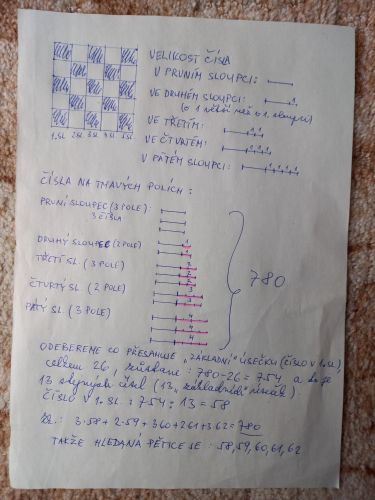 VELIKOST ČÍSLA
V PRVNÍM SLOUPCI:
VE DRUHÉM SLOUPCI: 1
(o 1 větší než v 1. sloupci)
VE TŘETÍM: 1 1
VE ČTVRTÉM: 1 1 1
V PÁTÉM SLOUPCI: 1 1 1 1
1.SL 2SL 3SL 4SL 5SL
ČÍSLA NA TMAVÝCH POLÍCH:
PRVNÍ SLOUPEC (3 POLE):
3 ČÍSLA
DRUHÝ SLOUPEC (2 POLE) 1
1
TŘETÍ SL (3 POLE) 2
2
2
780
ČTVRTÝ SL (2 POLE) 3
3
PÁTÝ SL (3 POLE) 4
4
4
ODEBEREME CO PŘESAHUJE "ZÁKLADNÍ" ÚSEČKU (ČÍSLO V 1.SL),
celkem 26, zůstane: 780-26=754, a to je
13 stejných čísel (13 "základních" úseček).
ČÍSLO V 1.SL: 754:13=58
Zk.: 3·58+2·59+3·60+2·61+3·62=780
TAKŽE HLEDANÁ PĚTICE JE: 58,59,60,61,62